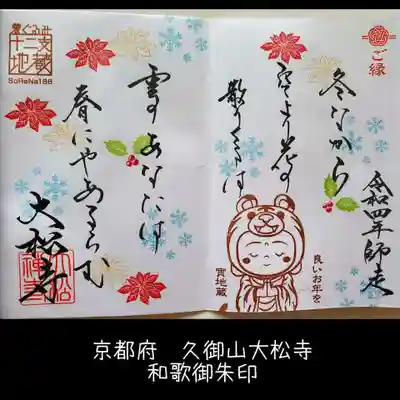 ご縁
令和四年師走
冬なから
空より花の
散りくるは
良いお年を
寅地蔵
雲のあなたは
春にやあるらむ
大松寺
着ぐるみ
十二支
地蔵
京都府　久御山大松寺
和歌御朱印